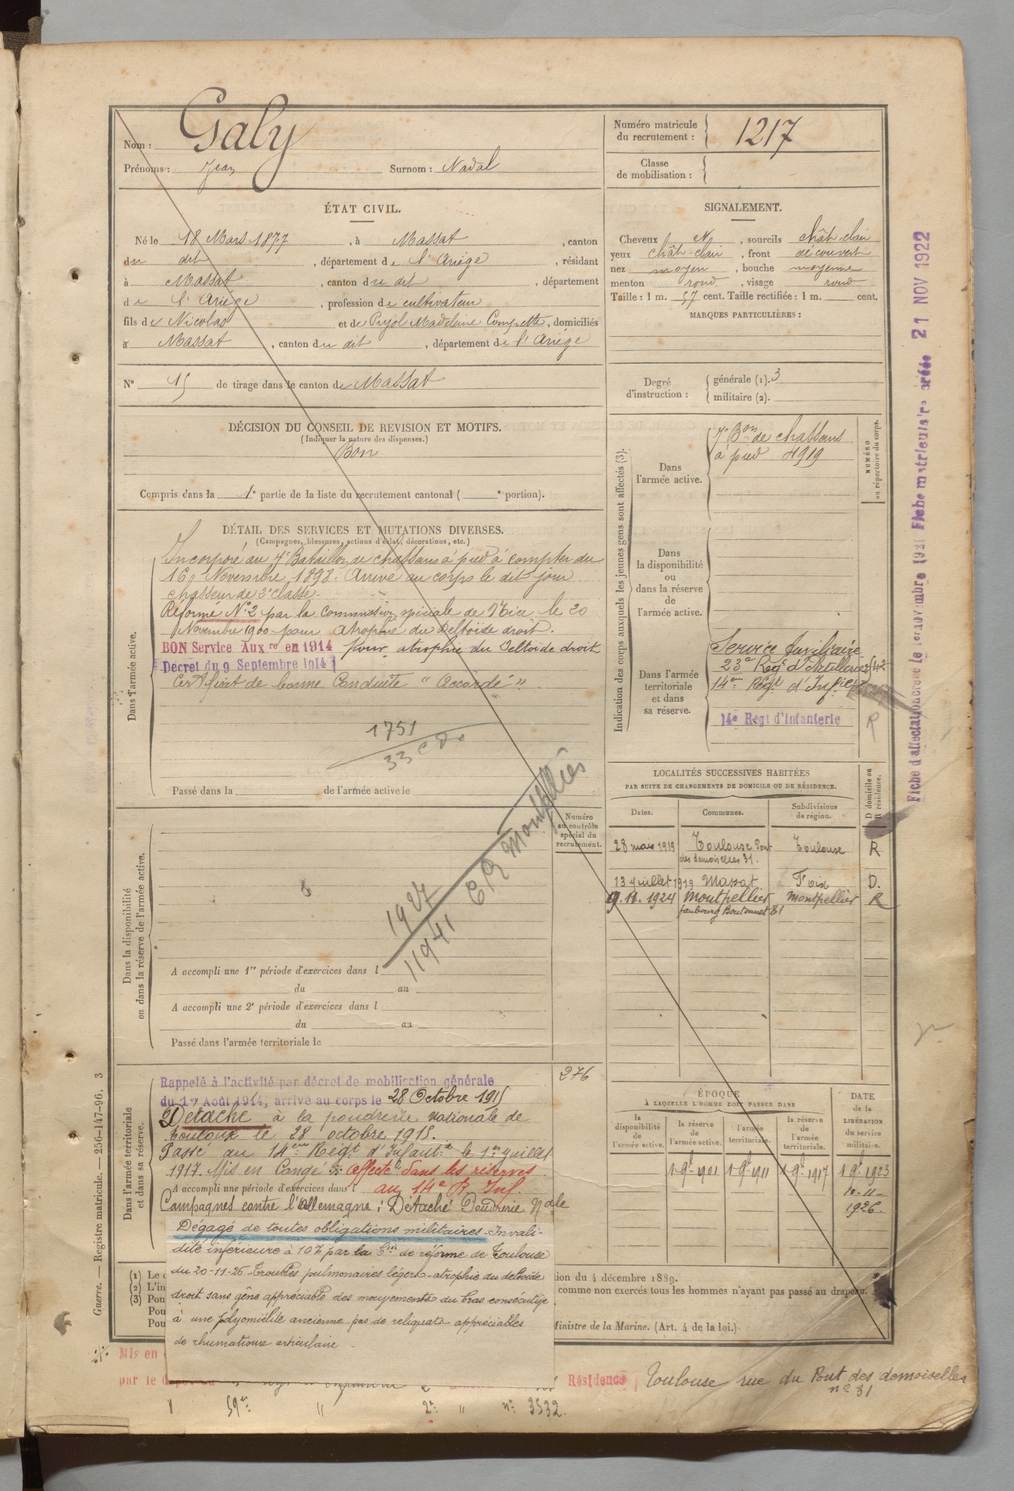 Nom : Galy
Prénoms : Jean Surnom : Nadal
Numéro matricule du recrutement : 1217
Classe de mobilisation :
ÉTAT CIVIL.
Né le 18 Mars 1877, à Massat, canton
du dit, département de l'Ariège, résidant
à Massat, canton du dit, département
de l'Ariège, profession de cultivateur
fils de Nicolas et de Pujol Madeleine, domiciliés
à Massat, canton du dit, département de l'Ariège
N° 15 de tirage dans le canton de Massat
SIGNALEMENT.
Cheveux, sourcils chât-clair
yeux chât-clair, front découvert
nez moyen, bouche moyenne
menton rond, visage rond
Taille : 1 m. 57 cent. Taille rectifiée : 1 m. cent.
MARQUES PARTICULIÈRES :
Degré d'instruction : générale (1). 3
militaire (2).
DÉCISION DU CONSEIL DE REVISION ET MOTIFS.
(Indiquer la nature des dispenses.)
Bon
Compris dans la 1e partie de la liste du recrutement cantonal ( e portion).
DÉTAIL DES SERVICES ET MUTATIONS DIVERSES.
(Campagnes, blessures, actions d'éclat, décorations, etc.)
Dans l'armée active.
Incorporé au 7e Bataillon de chasseurs à pied à compter du
16 Novembre 1898. Arrivé au corps le dit jour
chasseur de 2e classe.
Réformé N°2 par la commission spéciale de Nice le 20
Novembre 1900 pour atrophie du deltoïde droit.
BON Service Auxre en 1914 pour atrophie du deltoïde droit
Décret du 9 Septembre 1914
Certificat de bonne Conduite "Accordé".
1751
33
Passé dans la de l'armée active le
Indication des corps auxquels les jeunes gens sont affectés (3).
Dans l'armée active.
7e Bon de chasseurs
à pied 4919
NUMÉRO au répertoire du corps.
Dans la disponibilité ou dans la réserve de l'armée active.
Dans l'armée territoriale et dans sa réserve.
Service Auxiliaire
23e Régt d'Artillerie
14e Régt d'Infie
14e Regt d'Infanterie R
LOCALITÉS SUCCESSIVES HABITÉES
PAR SUITE DE CHANGEMENTS DE DOMICILE OU DE RÉSIDENCE.
Dates. Communes. Subdivisions de région. D domicile ou R résidence.
28 mars 1919 Toulouse Pont des demoiselles 31. Toulouse R
13 juillet 1919 Massat Foix D.
9.11.1924 Montpellier faubourg Boutonnet 81 Montpellier R
Numéro au contrôle spécial du recrutement.
Dans la disponibilité ou dans la réserve de l'armée active.
1927
11941 CR Montpellier
A accompli une 1re période d'exercices dans l
du au
A accompli une 2e période d'exercices dans l
du au
Passé dans l'armée territoriale le
276
Dans l'armée territoriale et dans sa réserve.
Rappelé à l'activité par décret de mobilisation générale
du 1er Août 1914, arrivé au corps le 28 Octobre 1915
Détaché à la poudrerie Nationale de
Toulouse le 28 octobre 1915.
Passé au 14eme Régt d'Infante le 1er juillet
1917. Mis en Congé affecté dans les réserves
A accompli une période d'exercices dans l au 14e R. Inf.
Campagnes contre l'allemagne : Détaché Poudrerie Nale
Dégagé de toutes obligations militaires. Invali-
dité inférieure à 10% par la Con de réforme de Toulouse
du 20-11-26. Troubles pulmonaires légers - atrophie du deltoïde
droit sans gêne appréciable des mouvements du bras consécutive
à une polyomiélite ancienne pas de reliquats appréciables
de rhumatisme articulaire.
ÉPOQUE
À LAQUELLE L'HOMME DOIT PASSER DANS
la disponibilité de l'armée active. la réserve de l'armée active. l'armée territoriale. la réserve de l'armée territoriale. DATE de la LIBÉRATION du service militaire.
1 9bre 1901 1 9bre 1911 1 9bre 1917 1 9bre 1923
10-11-1926
(1) Le
(2) L'in
(3) Pou
Pou
Pou
ion du 4 décembre 1889.
comme non exercés tous les hommes n'ayant pas passé au drapeau.
Ministre de la Marine. (Art. 4 de la loi.)
Mis en
par le
Résidence Toulouse rue du Pont des demoiselles
n° 31
59e " 2e " n° 3532.
Guerre. — Registre matricule. — 256-147-96. 3
Fiche matriculaire créée 21 NOV 1922